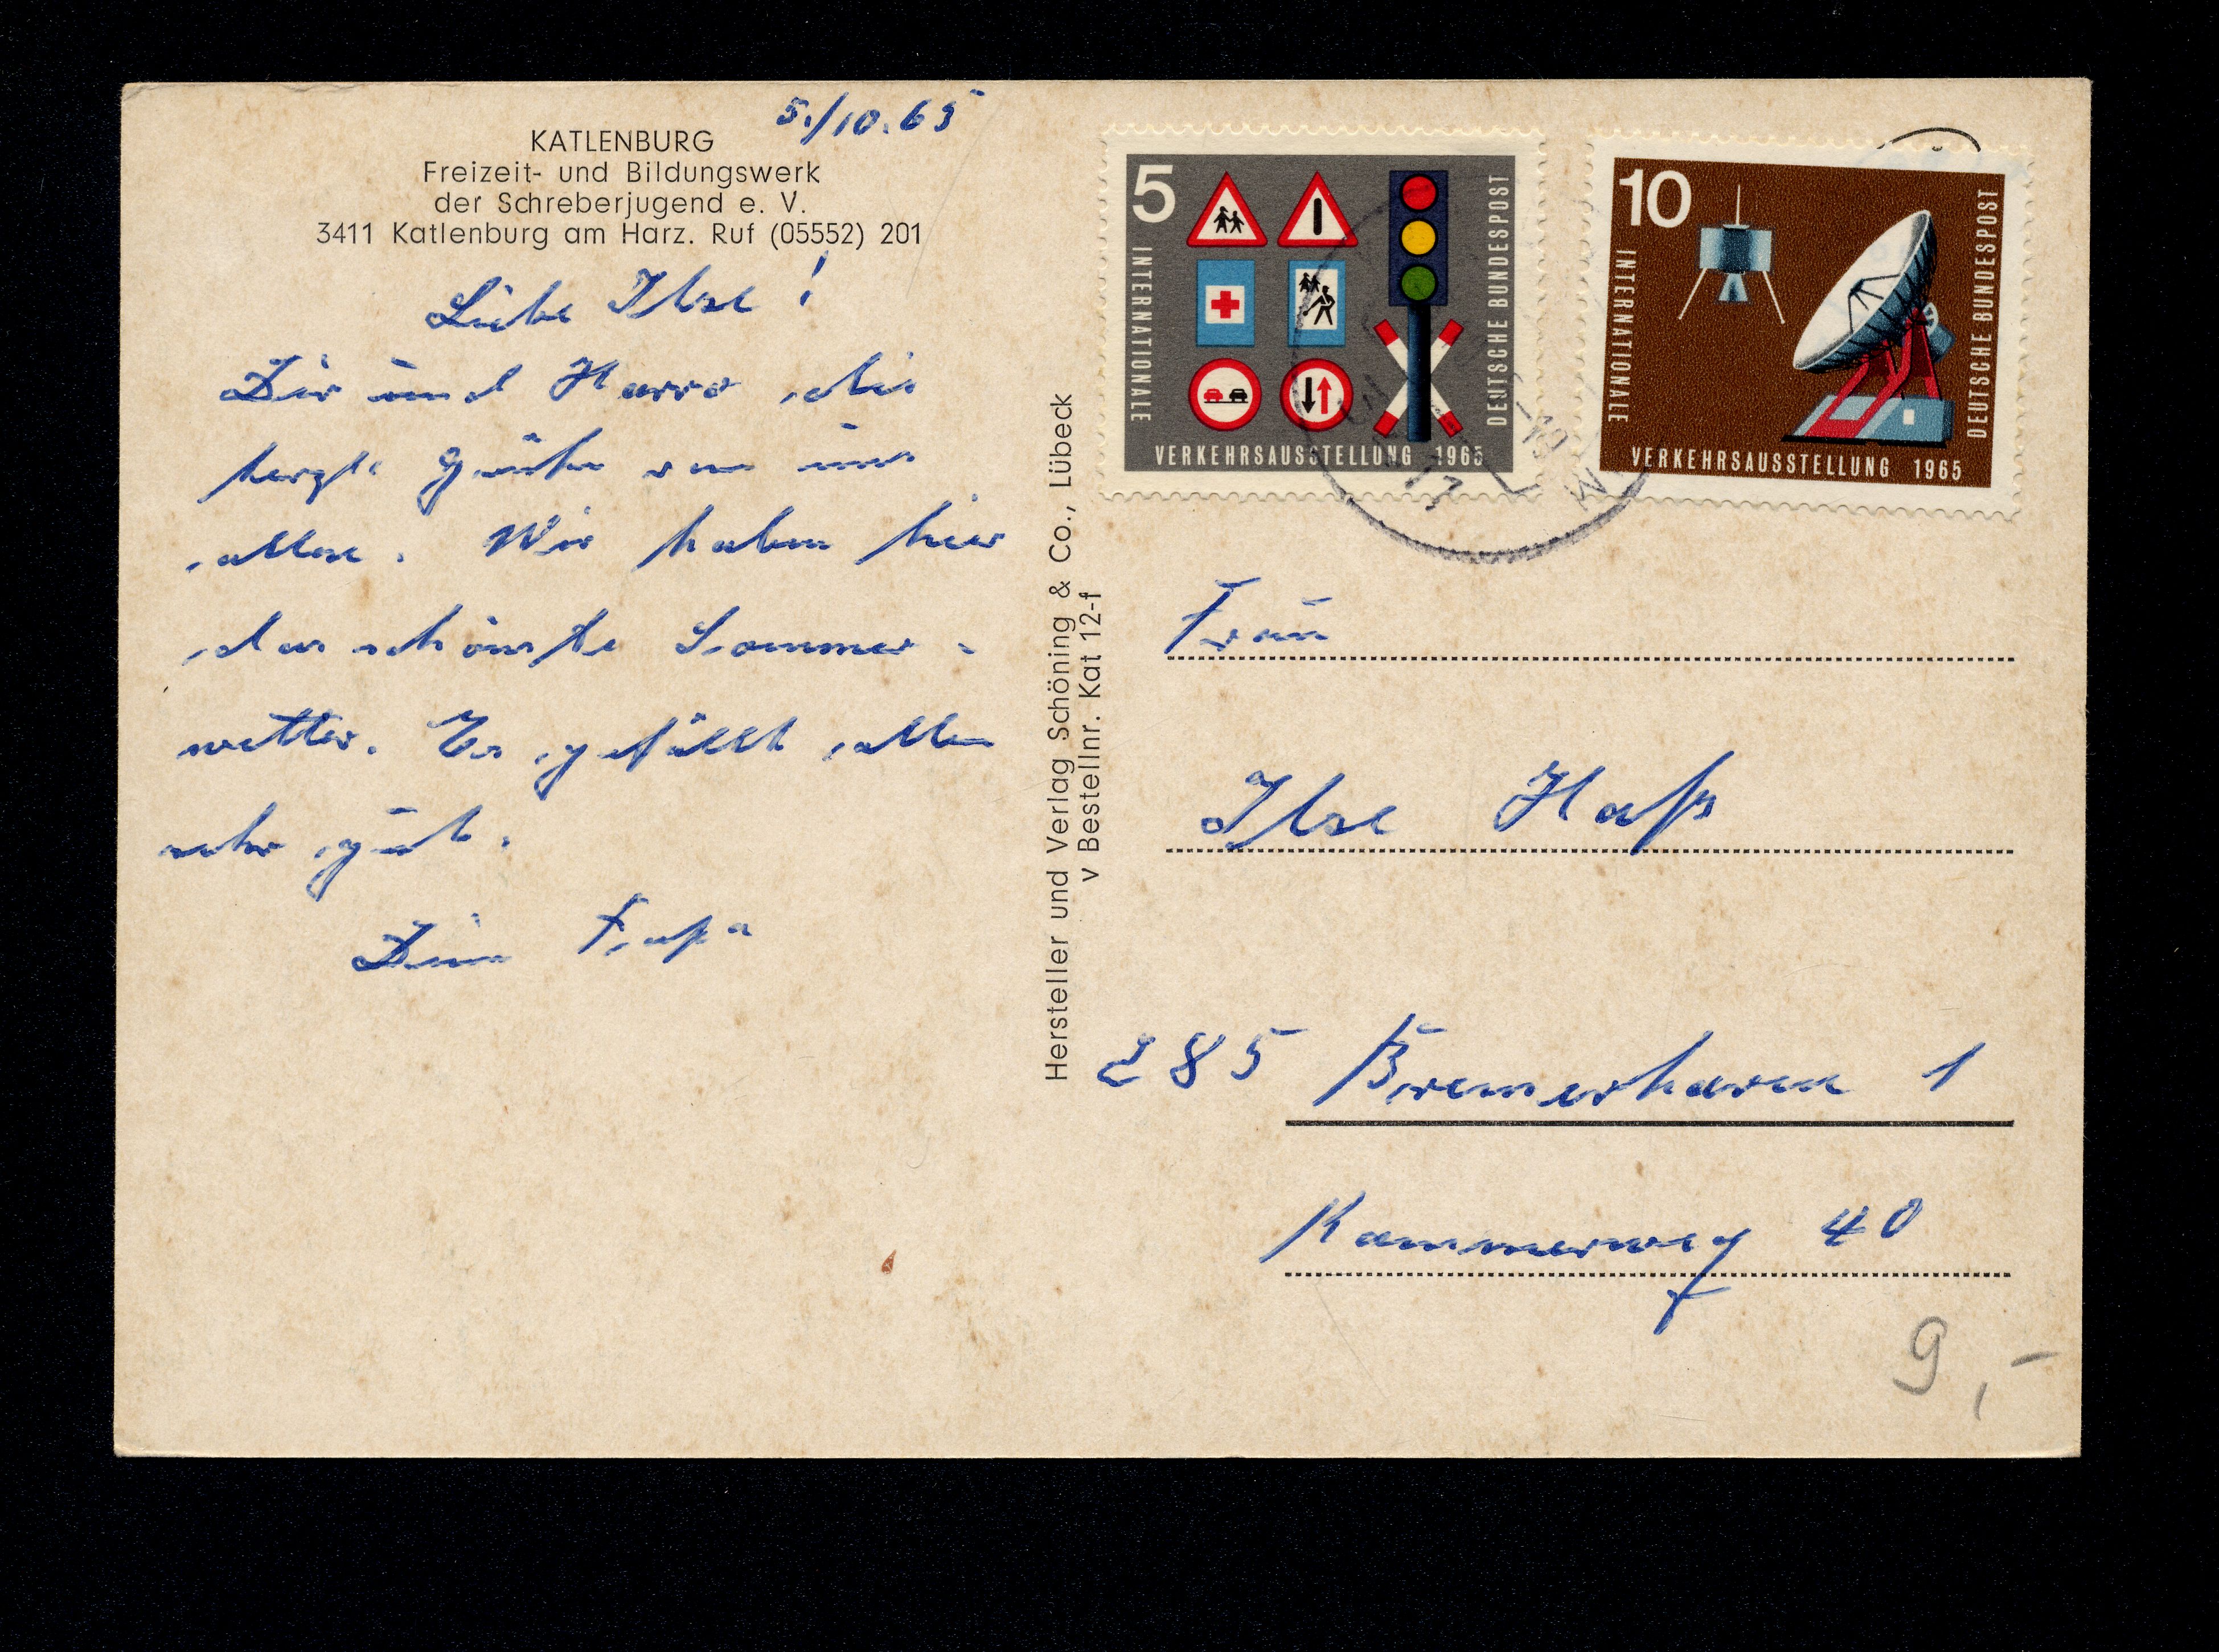 5./10.65
KATLENBURG
Freizeit- und Bildungswerk
der Schreberjugend e. V.
3411 Katlenburg am Harz. Ruf (05552) 201
Liebe Ilse!
Dir und Harro die
herzl. Grüße von uns
allen. Wir haben hier
das schönste Sommer-
wetter. Es gefällt allen
sehr gut.
Dein
Hersteller und Verlag Schöning & Co., Lübeck
v Bestellnr. Kat 12-f
5
INTERNATIONALE
VERKEHRSAUSSTELLUNG 1965
DEUTSCHE BUNDESPOST
10
INTERNATIONALE
VERKEHRSAUSSTELLUNG 1965
DEUTSCHE BUNDESPOST
Frau
Ilse Haß
285 Bremerhaven 1
Kammerweg 40
9,-